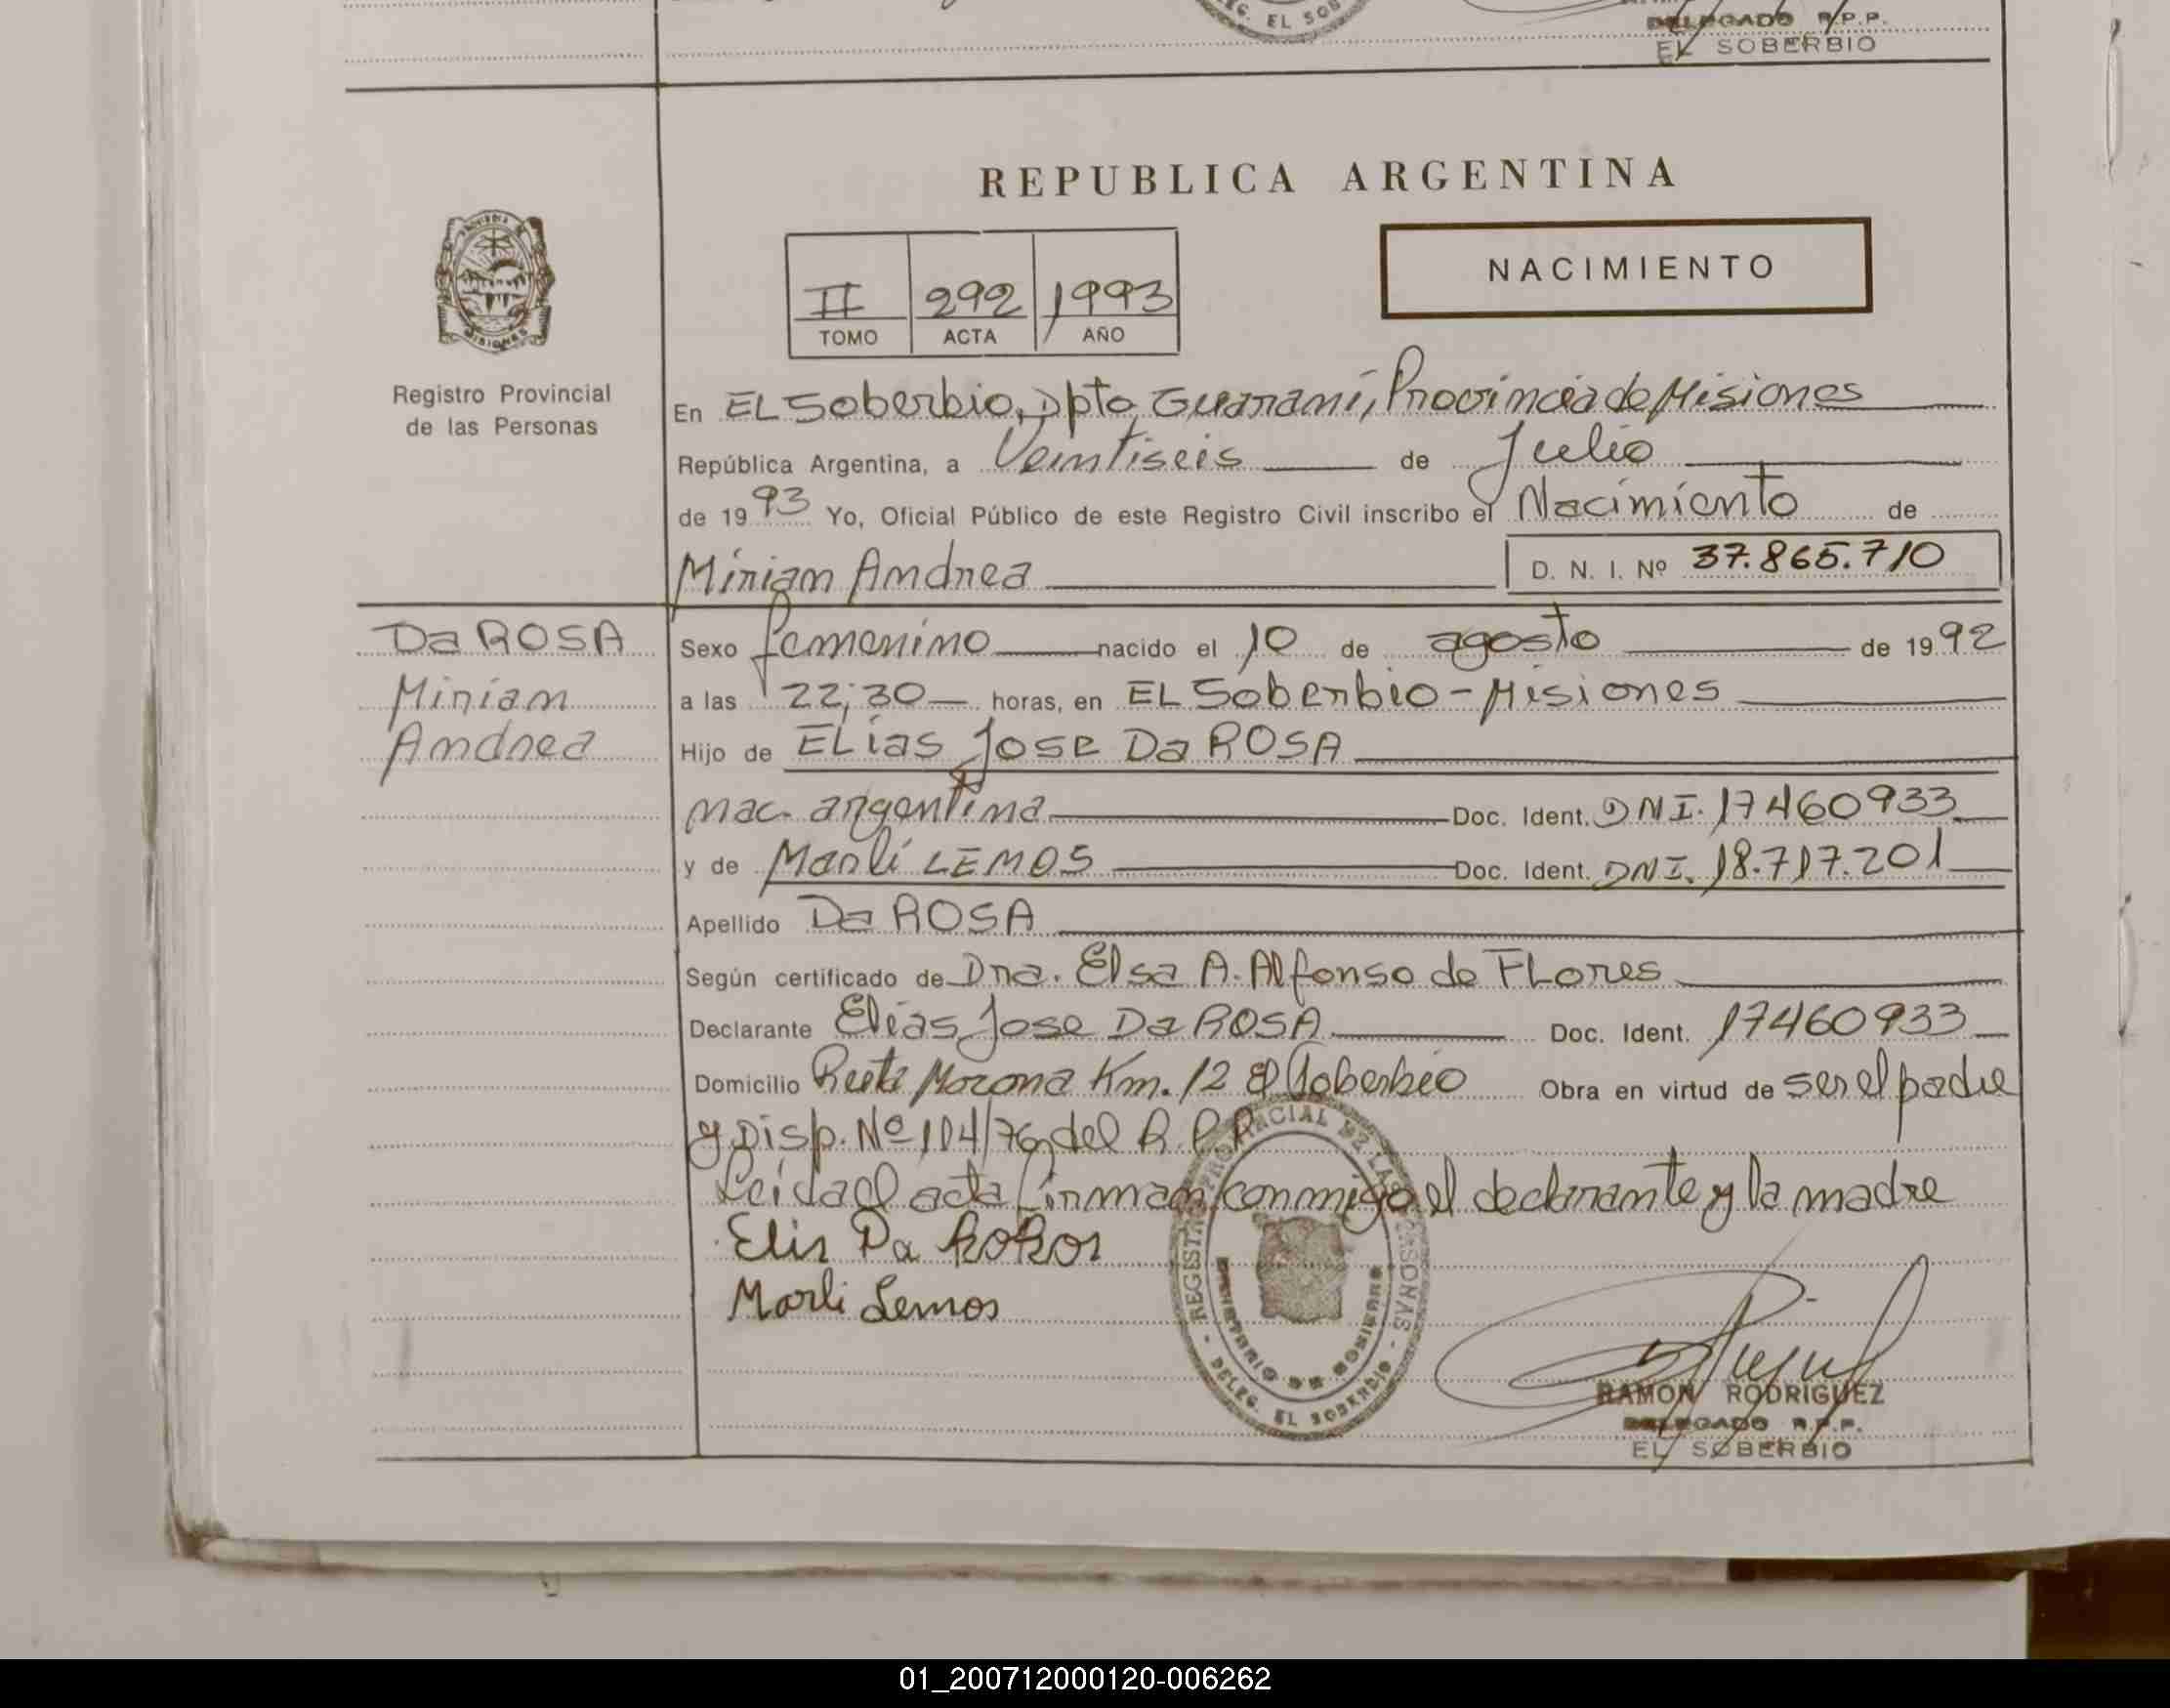 DELEGADO R.P.P.
EL SOBERBIO
REPUBLICA ARGENTINA
NACIMIENTO
II 292 1993
TOMO ACTA AÑO
Registro Provincial
de las Personas
En EL Soberbio, Dpto Guaraní, Provincia de Misiones
República Argentina, a Veintiseis de Julio
de 1993 Yo, Oficial Público de este Registro Civil inscribo el Nacimiento de
Miriam Andrea D. N. I. Nº 37.865.710
Da ROSA
Miriam
Andrea
Sexo femenino nacido el 10 de agosto de 1992
a las 22;30 horas, en EL Soberbio - Misiones
Hijo de ELias Jose Da ROSA
nac. argentina Doc. Ident. DNI. 17460933
y de Marli LEMOS Doc. Ident. DNI. 18.717.201
Apellido Da ROSA
Según certificado de Dra. Elsa A. Alfonso de FLores
Declarante Elias Jose Da ROSA Doc. Ident. 17460933
Domicilio Ruta Km. 12 El Soberbio Obra en virtud de ser el padre
y Disp. Nº 104/76 del R.P.P.
Leida el acta firman conmigo el declarante y la madre
Da
Marli Lemos
REGISTRO PROVINCIAL DE LAS PERSONAS
MINISTERIO DE GOBIERNO
DELEG. EL SOBERBIO
RAMON RODRIGUEZ
DELEGADO R.P.P.
EL SOBERBIO
01_200712000120-006262